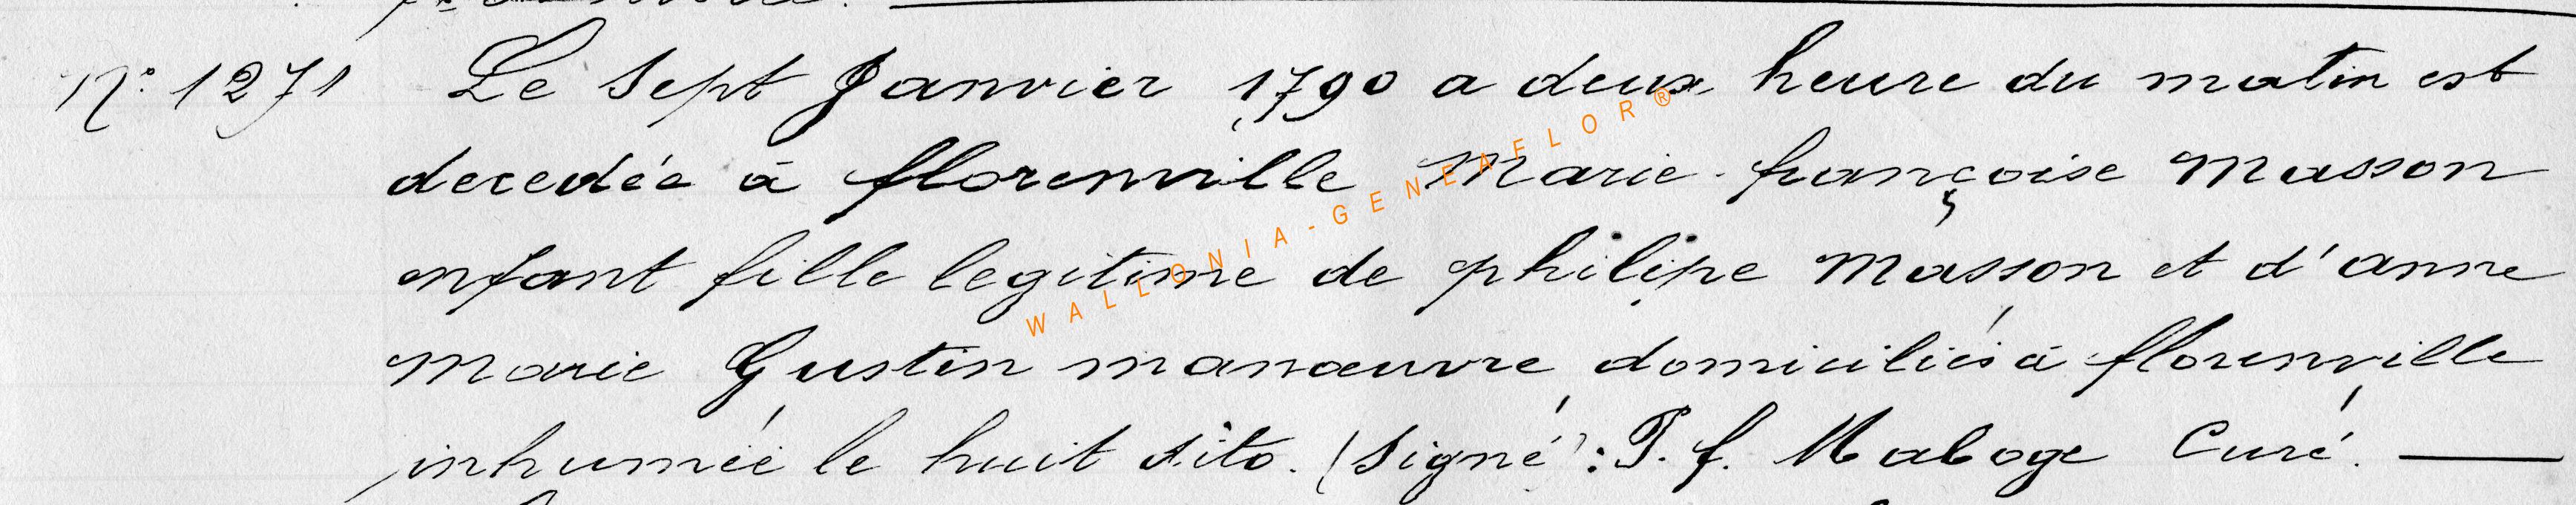 N.° 1271 Le Sept Janvier 1790 a deux heure du matin est
decedée à florenville Marie-françoise Masson
enfant fille legitime de philipe Masson et d'anne
Marie Gustin manœuvre domiciliés à florenville
inhumée le huit dito. (Signé): P. f. Maboge Curé.
WALLONIA-GENEAFLOR®